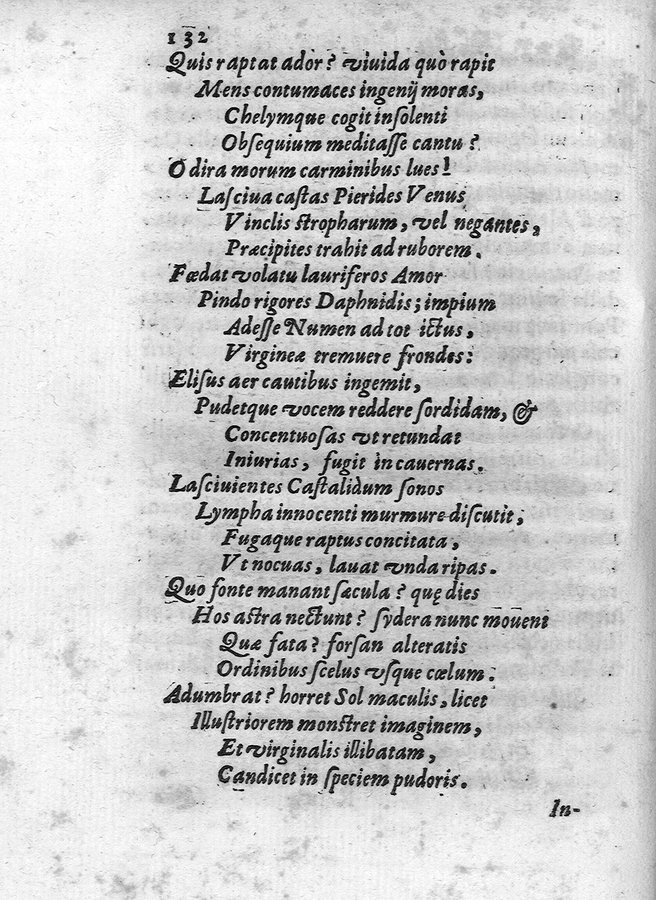 132
Quis raptat ador? viuida quò rapit
Mens contumaces ingenij moras,
Chelymque cogit insolenti
Obsequium meditasse cantu?
O dira morum carminibus lues!
Lasciua castas Pierides Venus
Vinclis stropharum, vel negantes,
Præcipites trahit ad ruborem.
Fœdat volatu lauriferos Amor
Pindo rigores Daphnidis; impium
Adesse Numen ad tot ictus,
Virgineæ tremuere frondes:
Elisus aer cautibus ingemit,
Pudetque vocem reddere sordidam, &
Concentuosas vt retundat
Iniurias, fugit in cauernas.
Lasciuientes Castalidum sonos
Lympha innocenti murmure discutit;
Fugaque raptus concitata,
Vt nocuas, lauat vnda ripas.
Quo fonte manant sæcula? quę dies
Hos astra nectunt? sydera nunc mouent
Quæ fata? forsan alteratis
Ordinibus scelus vsque cœlum:
Adumbrat? horret Sol maculis, licet
Illustriorem monstret imaginem,
Et virginalis illibatam,
Candicet in speciem pudoris.
In-